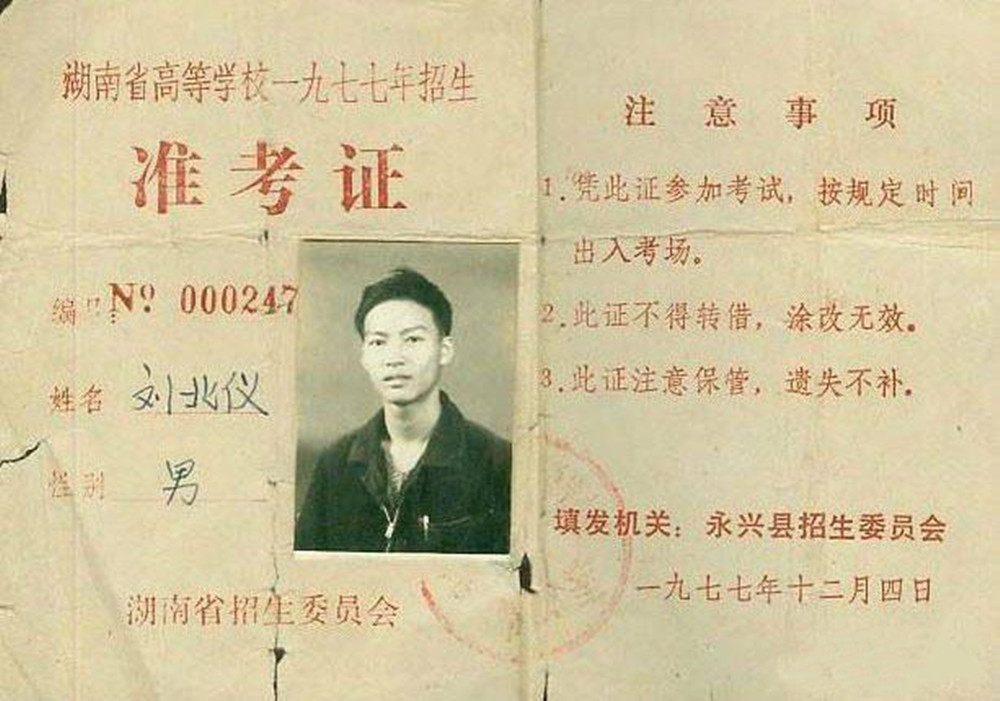 湖南省高等学校一九七七年招生
准考证
编号 № 000247
姓名 刘北仪
性别 男
湖南省招生委员会
注意事项
1.凭此证参加考试，按规定时间
出入考场。
2.此证不得转借，涂改无效。
3.此证注意保管，遗失不补。
填发机关：永兴县招生委员会
一九七七年十二月四日